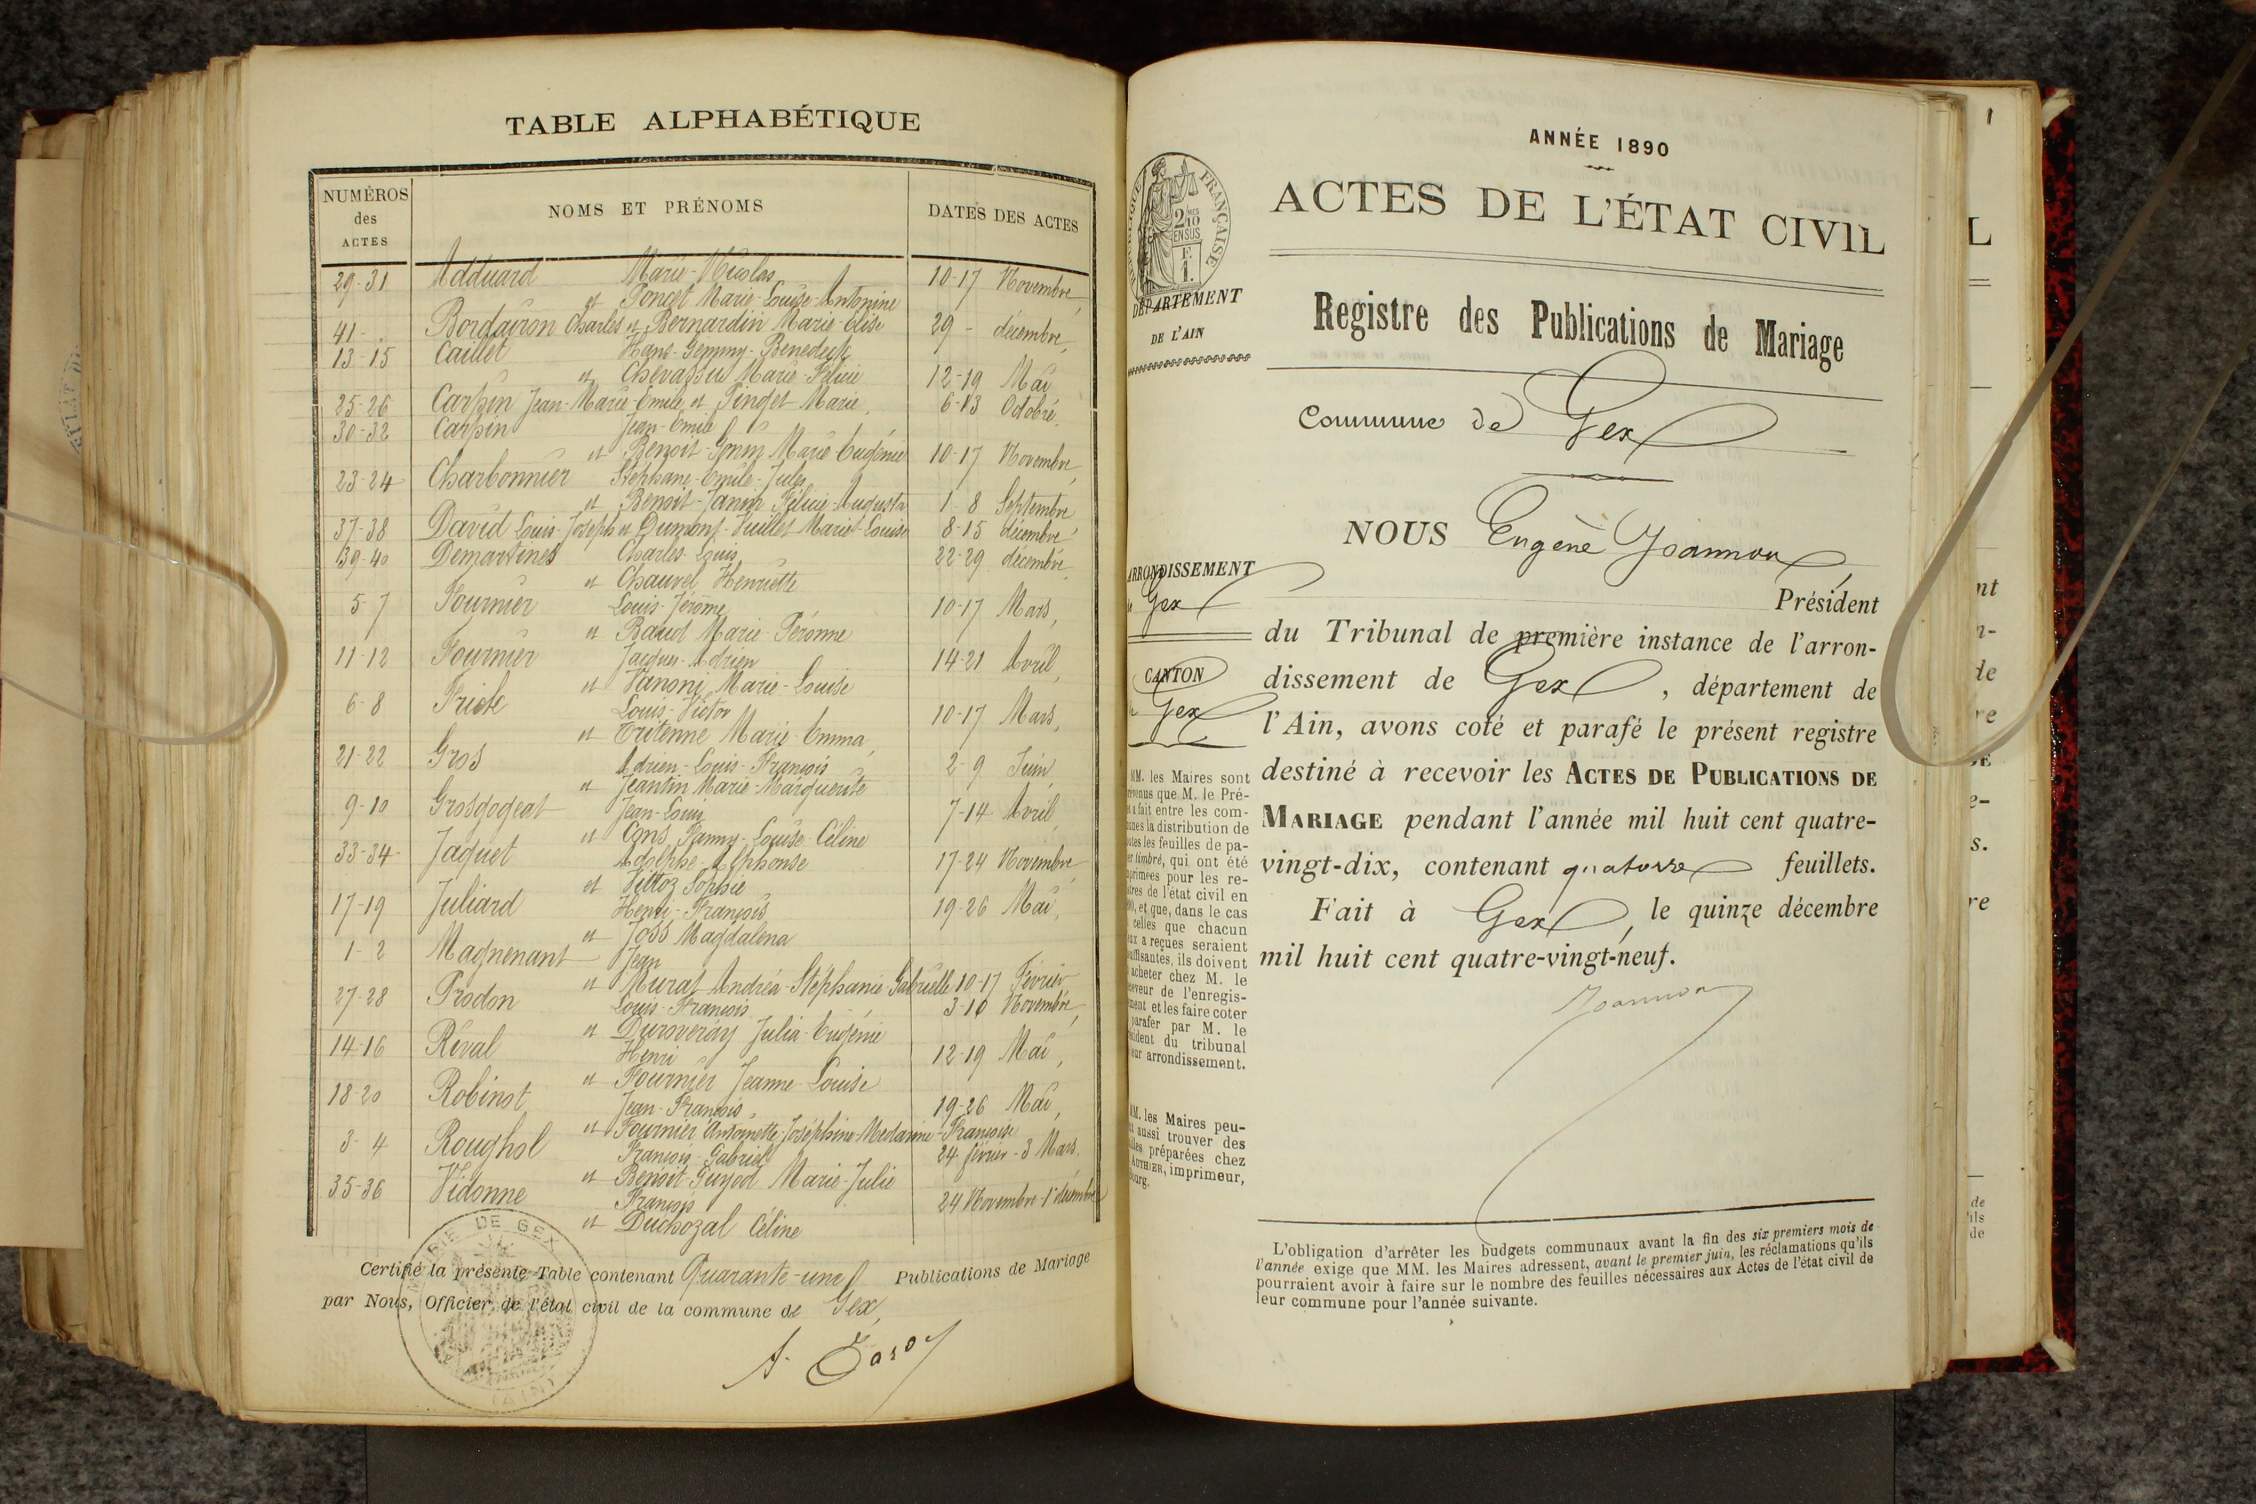 TABLE ALPHABÉTIQUE
NUMÉROS des ACTES
NOMS ET PRÉNOMS
DATES DES ACTES
29-31 Adduard Marie-Nicolas 10-17 Novembre,
et Poncet Marie-Louise-Antonine
41- Bordairon Charles et Bernardin Marie-Elise 29 - décembre,
13-15 Caillet Hans-Gemmy-Benedeck
et Chevassu Marie-Félicie 12-19 Mai
25-26 Carpin Jean-Marie-Emile et Pinget Marie, 6-13 Octobre.
30-32 Carpin Jean-Emile
et Benoit-Gonin Marie-Eugénie 10-17 Novembre,
23-24 Charbonnier Stéphane-Emile-Jules
et Benoit-Janin Félicie-Augusta 1-8 Septembre
37-38 David Louis-Joseph et Dumont-Vuillet Mariet-Louise 8-15 décembre,
39-40 Demartines Charles-Louis 22-29 décembre,
et Chauvel Henriette
5-7 Fournier Louis-Jérôme 10-17 Mars,
et Baud Marie-Péronne
11-12 Fournier Jacques-Adrien 14-21 Avril,
et Vanoni Marie-Louise
6-8 Louis-Victor 10-17 Mars,
et Marie-Emma,
21-22 Gros Adrien-Louis-François 2-9 Juin,
et Jeantin Marie-Marguerite
9-10 Grosgogeat Jean-Louis 7-14 Avril,
et Cons Fanny-Louise-Céline
33-34 Jaquet Adolphe-Alphonse 17-24 Novembre,
et Vittoz Sophie
17-19 Juliard Henri-François 19-26 Mai,
et Joss Magdalena
1-2 Magnenant Jean
et Murat Andréa-Stéphanie-Gabrielle 10-17 Février,
27-28 Prodon Louis-François 3-10 Novembre,
et Duroveray Julia-Eugénie
14-16 Réval Henri 12-19 Mai,
et Fournier Jeanne-Louise
18-20 Robinot Jean-François 19-26 Mai,
et Fournier Antoinette-Joséphine-Medarine-Françoise
3-4 Roughol François-Gabriel 24 février-3 Mars,
et Benoit-Guyod Marie-Julie
35-36 Vidonne François 24 Novembre-1er décembre
et Duchozal Céline
Certifié la présente Table contenant Quarante-une Publications de Mariage
par Nous, Officier de l'état civil de la commune de Gex,
MAIRIE DE GEX
(AIN)
ANNÉE 1890
ACTES DE L'ÉTAT CIVIL
RÉPUBLIQUE FRANÇAISE
2 10 EN SUS
F. 1.
DÉPARTEMENT
DE L'AIN
Registre des Publications de Mariage
Commune de Gex
NOUS Eugène Joannon,
Président
ARRONDISSEMENT
de Gex
CANTON
de Gex
du Tribunal de première instance de l'arron-
dissement de Gex, département de
l'Ain, avons coté et parafé le présent registre
destiné à recevoir les ACTES DE PUBLICATIONS DE
MARIAGE pendant l'année mil huit cent quatre-
vingt-dix, contenant quatorze feuillets.
Fait à Gex, le quinze décembre
mil huit cent quatre-vingt-neuf.
Joannon
MM. les Maires sont
que M. le Pré-
a fait entre les com-
la distribution de
les feuilles de pa-
timbré, qui ont été
pour les re-
de l'état civil en
et que, dans le cas
celles que chacun
a reçues seraient
ils doivent
acheter chez M. le
de l'enregis-
et les faire coter
parafer par M. le
du tribunal
arrondissement.
MM. les Maires peu-
aussi trouver des
préparées chez
AUTHIER, imprimeur,
L'obligation d'arrêter les budgets communaux avant la fin des six premiers mois de
l'année exige que MM. les Maires adressent, avant le premier juin, les réclamations qu'ils
pourraient avoir à faire sur le nombre des feuilles nécessaires aux Actes de l'état civil de
leur commune pour l'année suivante.